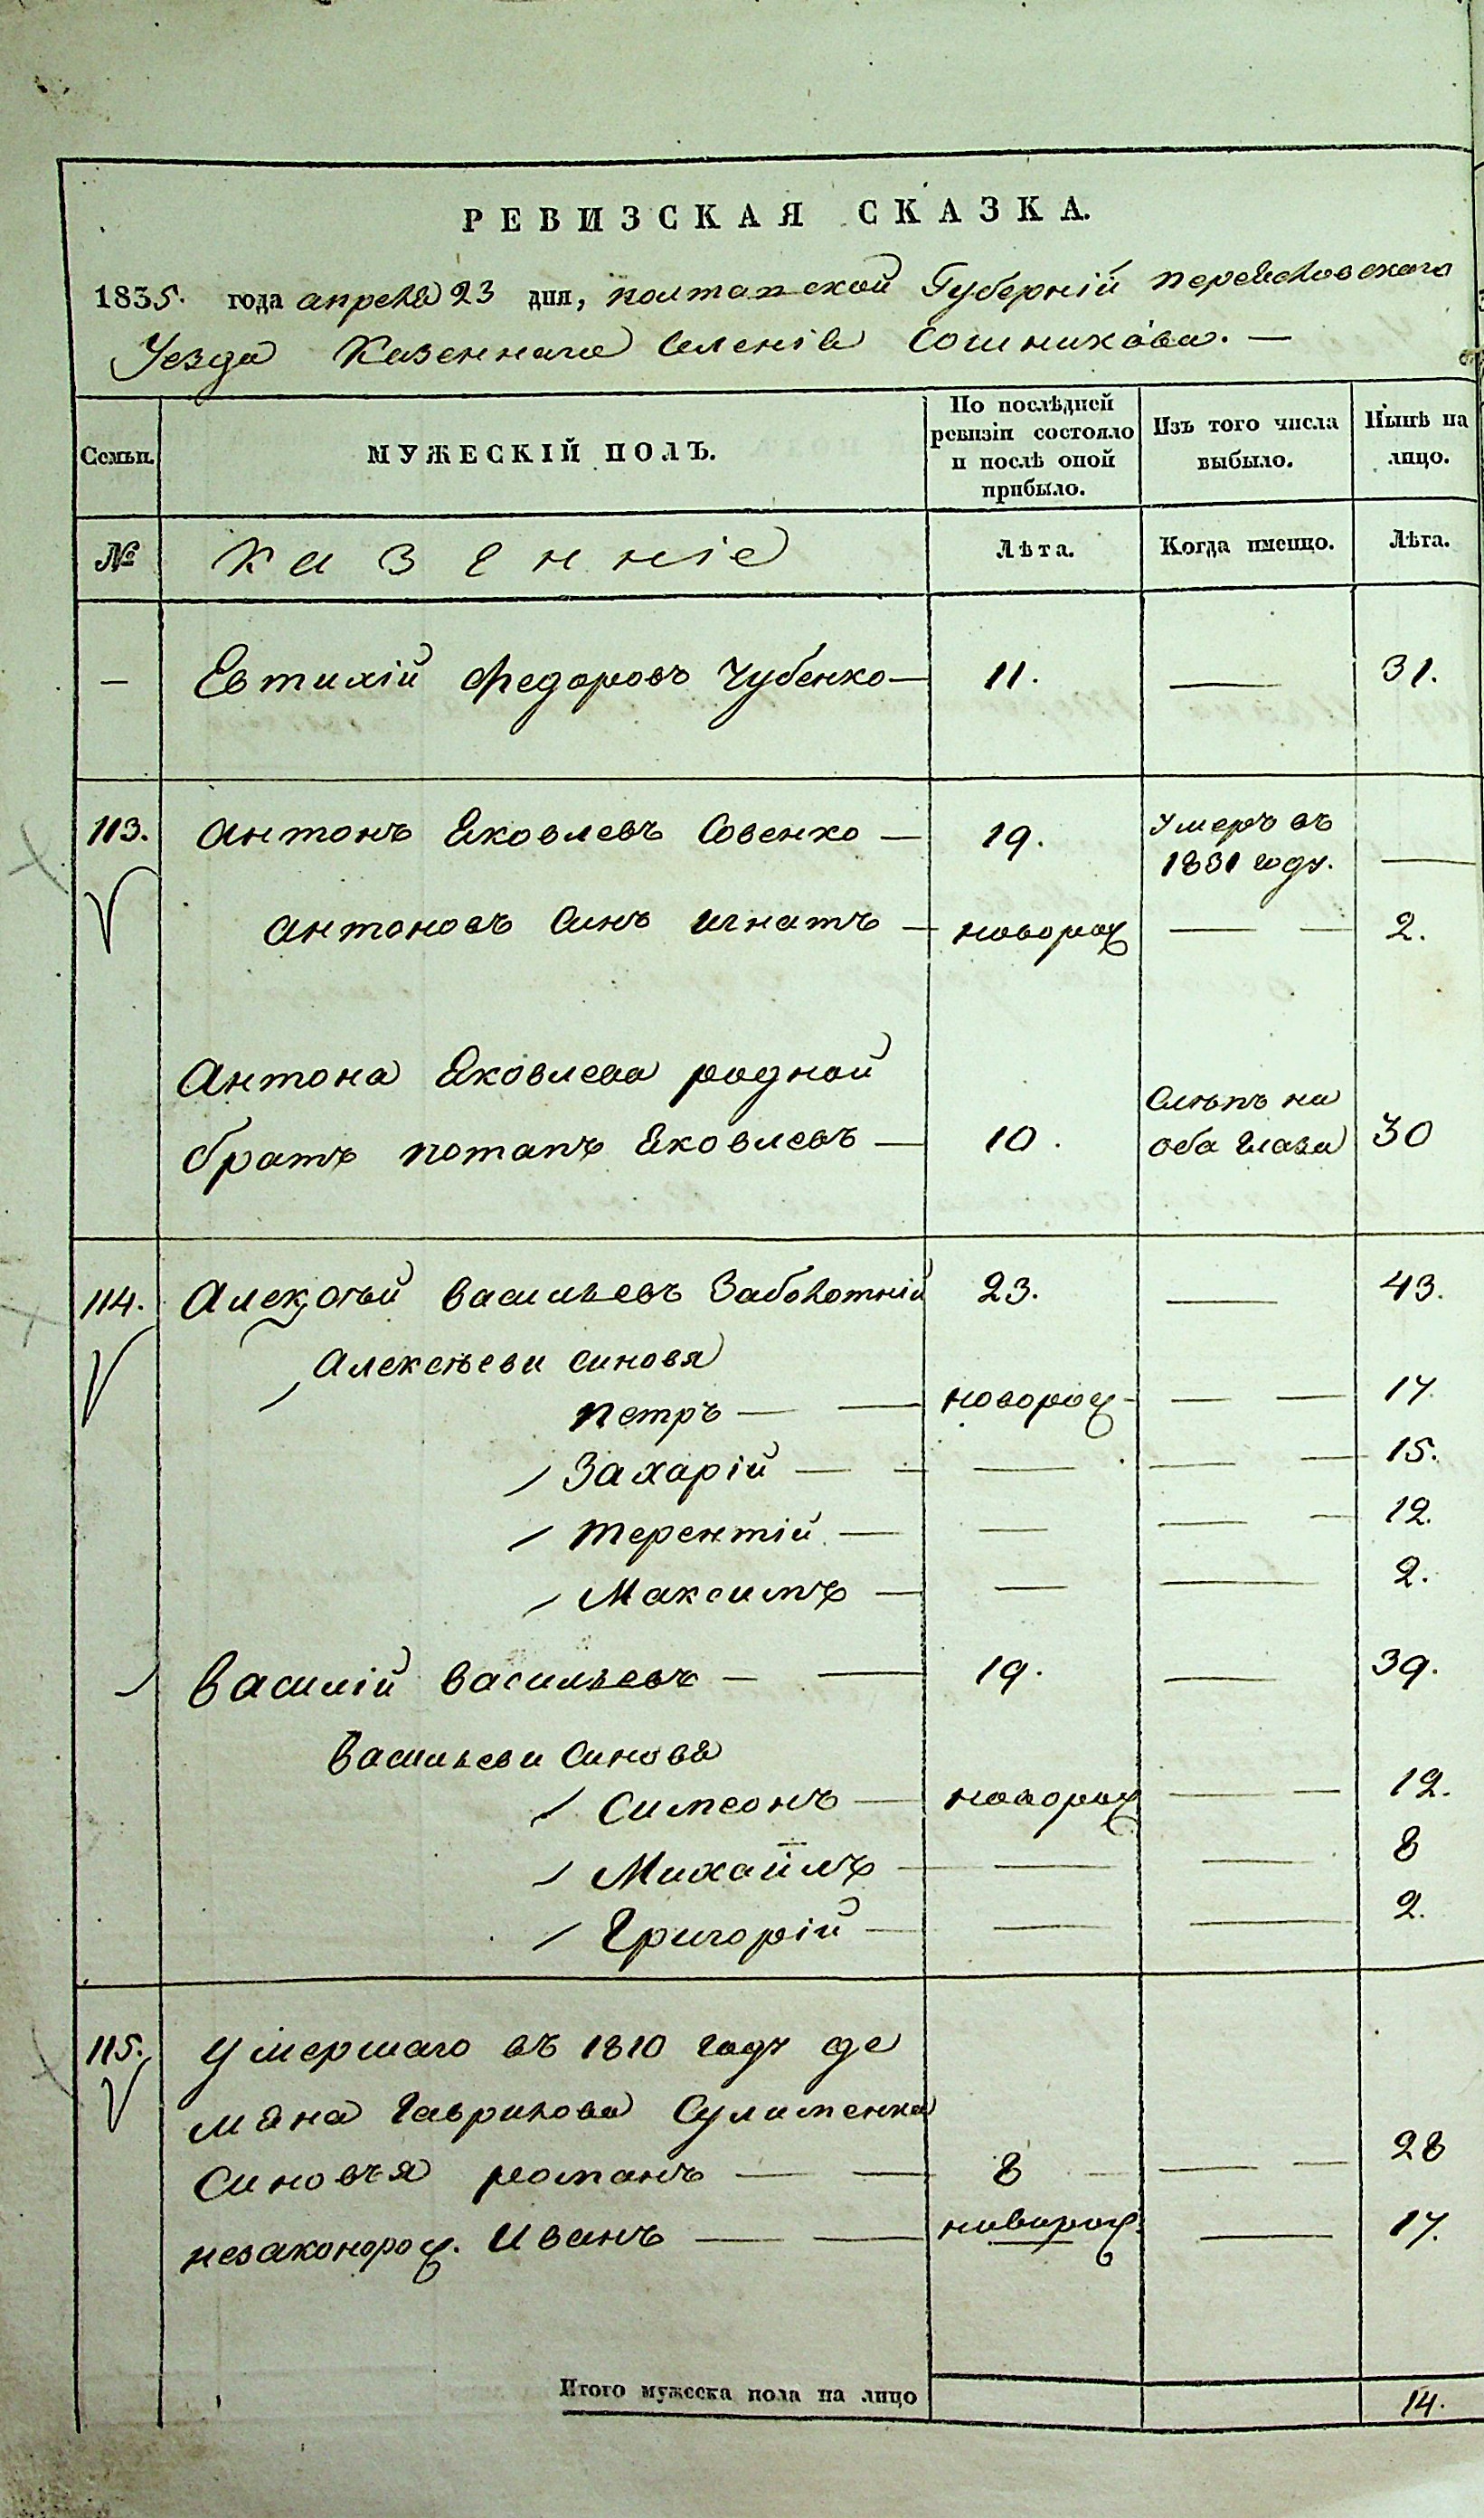 РЕВИЗСКАЯ СКАЗКА.
1835. года апреля 23 дня, полтавской Губерній переясловского
Уезда Казенного Селенія Сошникова. —
Семьи.
МУЖЕСКІЙ ПОЛЪ.
По послѣдней
ревизіи состояло
и послѣ оной
прибыло.
Изъ того числа
выбыло.
Нынѣ на
лицо.
№
Казенніе
Лѣта.
Когда именно.
Лѣта.
— Евтихій Федоровъ Чубенко — 11. — 31.
113. Антонъ Яковлевъ Совенко — 19. Умеръ въ
1831 году. —
Антоновъ Синъ Игнатъ — новорож — — 2.
Антона Яковлева родной
братъ потапъ Яковлевъ — 10. Слѣпъ на
оба глаза 30
114. Алексѣй Васильевъ Заболотній 23. — 43.
Алексѣеви синовя
петръ — — новорож — — 17.
Захарій — — — — — 15.
Терентій — — — — 12.
Максимъ — — — 2.
Василій Васильевъ — — 19. — 39.
Васильеви Синовя
Симеонъ — новорож — — 12.
Михайлъ — — — 8
Григорій — — — 2.
115. Умершаго въ 1810 году де
мяна Гаврилова Сулименка
Синовъя романъ — — 8 — — — 28
незаконорож. Иванъ — — новорож. — 17.
Итого мужеска пола на лицо 14.